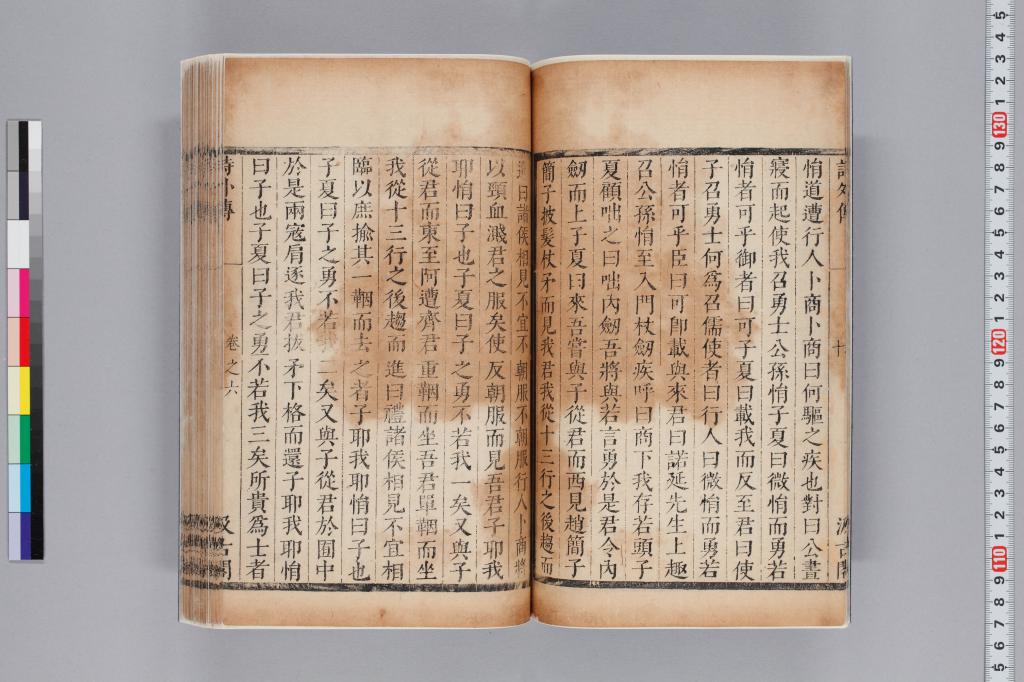 悄道遭行人卜商卜商曰何驅之疾也對曰公晝
寢而起使我召勇士公孫悄子夏曰微悄而勇若
悄者可乎御者曰可子夏曰載我而反至君曰使
子召勇士何為召儒使者曰行人曰微悄而勇若
悄者可乎臣曰可卽載與來君曰諾延先生上趣
召公孫悄至入門杖劒疾呼曰商下我存若頭子
夏顧咄之曰咄內劒吾將與若言勇於是君令內
劒而上子夏曰來吾嘗與子從君而西見趙簡子
簡子披髮杖矛而見我君我從十三行之後趨而
進曰諸侯相見不宜不朝服不朝服行人卜商將
以頸血濺君之服矣使反朝服而見吾君子耶我
耶悄曰子也子夏曰子之勇不若我一矣又與子
從君而東至阿遭齊君重鞇而坐吾君單鞇而坐
我從十三行之後趨而進曰禮諸侯相見不宜相
臨以庶揄其一鞇而去之者子耶我耶悄曰子也
子夏曰子之勇不若我二矣又與子從君於囿中
於是兩寇肩逐我君拔矛下格而還子耶我耶悄
曰子也子夏曰子之勇不若我三矣所貴為士者
卷之六
汲古閣